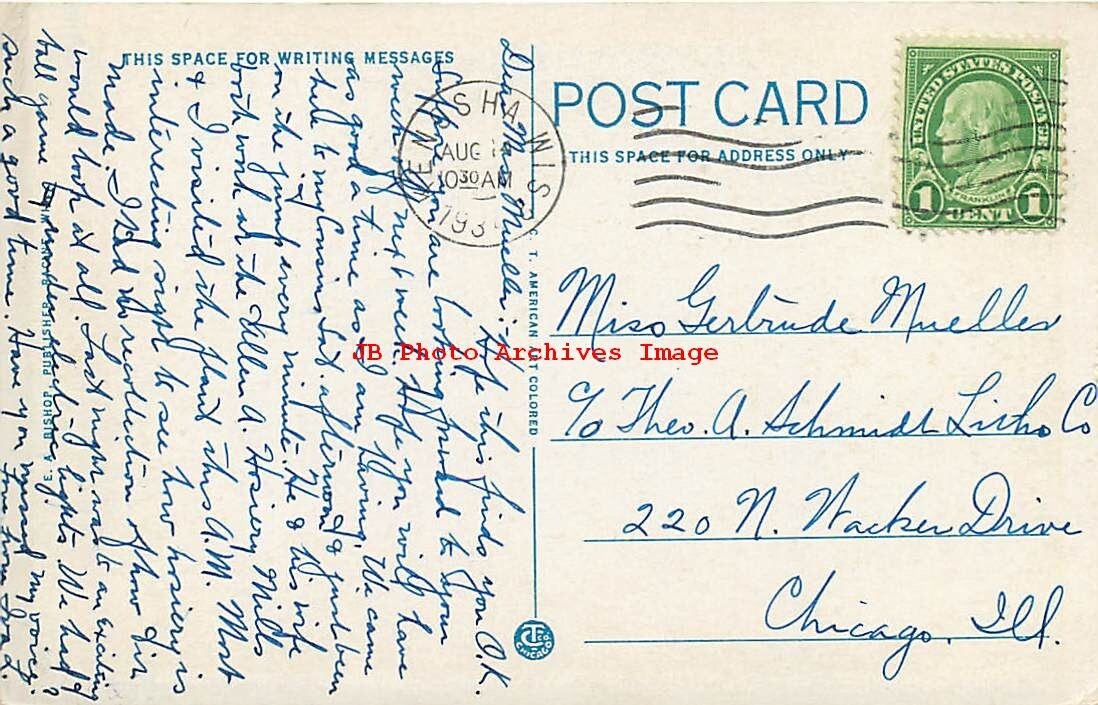 THIS SPACE FOR WRITING MESSAGES
POST CARD
THIS SPACE FOR ADDRESS ONLY
UNITED STATES POSTAGE
FRANKLIN
1 CENT 1
KENOSHA WIS
AUG
10 30 AM
193
Dear Miss Mueller:- Hope this finds you O.K.
Suppose you are looking forward to your
week off next week. Hope you will have
as good a time as I am having. We came
here to my Cousins Sat. afternoon & just been
on the jump every minute. He & his wife
both work at the Allen A. Hosiery Mills
& I visited the plant this A.M. Most
interesting sight to see how hosiery is
made. I had no recollection of how it
would look at all. Last night was to an exciting
ball game under electric lights. We had
such a good time. Have you missed my voice?
C. T. AMERICAN ART COLORED
E. A. BISHOP, PUBLISHER,
JB Photo Archives Image
Miss Gertrude Mueller
c/o Theo. A. Schmidt Litho Co
220 N. Wacker Drive
Chicago, Ill.
CHICAGO